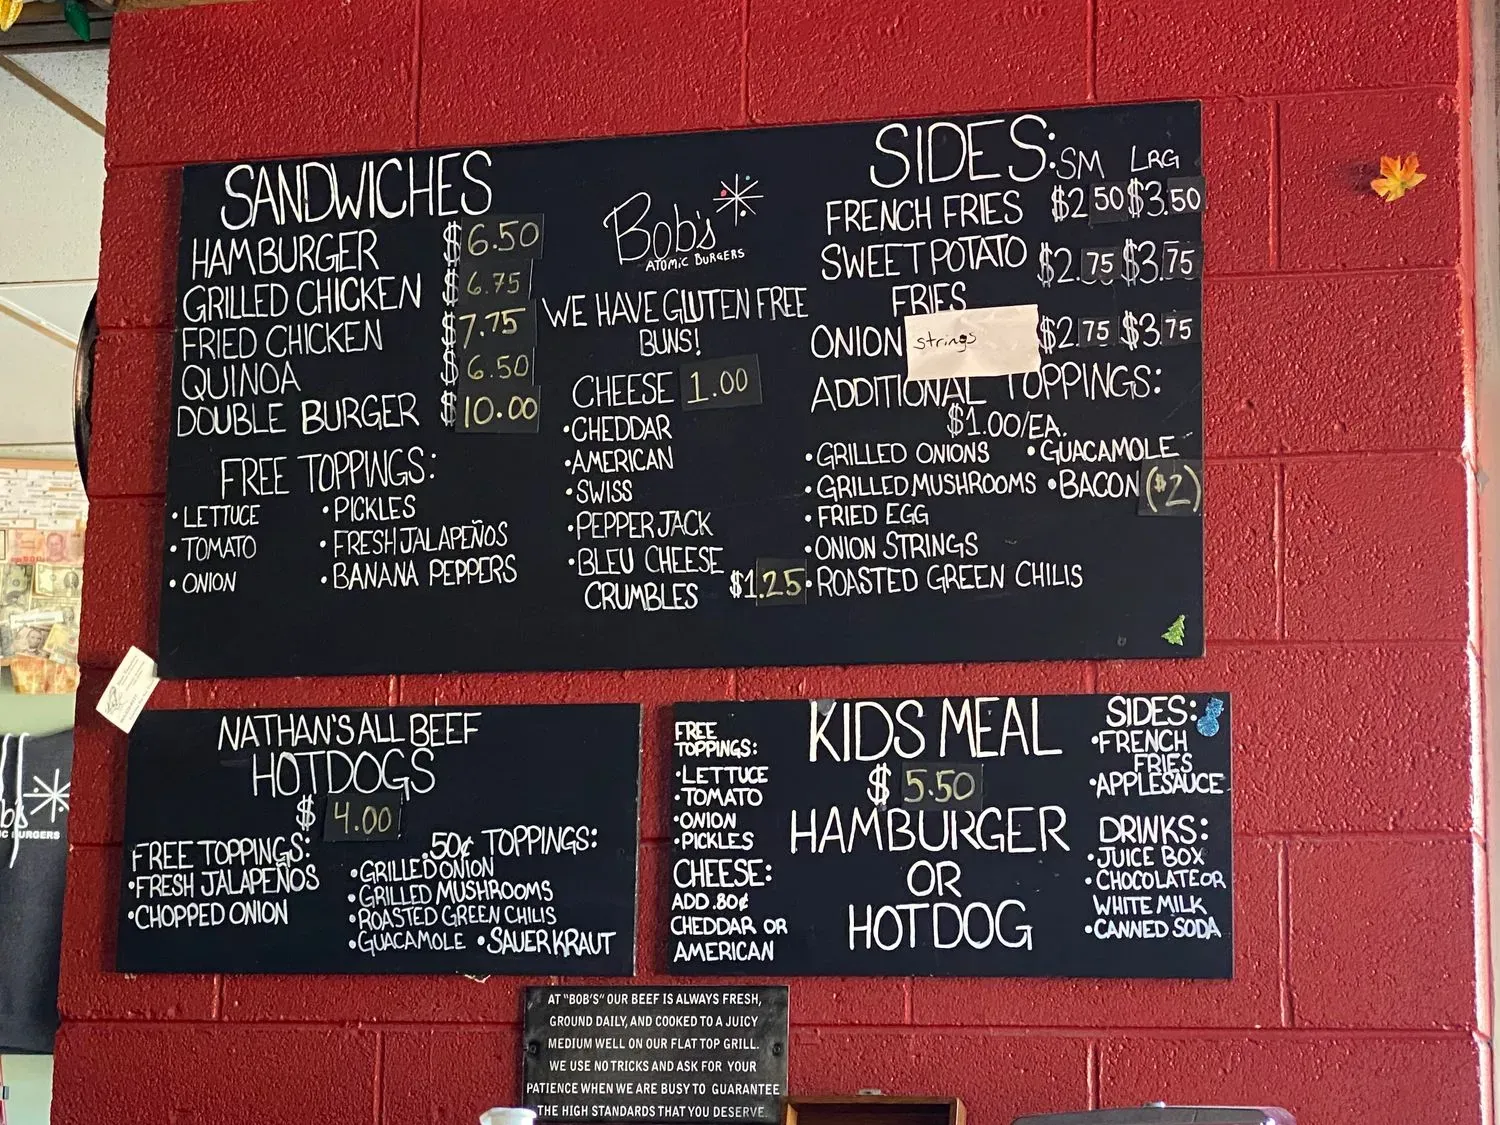 SANDWICHES
HAMBURGER $6.50
GRILLED CHICKEN $6.75
FRIED CHICKEN $7.75
QUINOA $6.50
DOUBLE BURGER $10.00
FREE TOPPINGS:
• LETTUCE
• TOMATO
• ONION
• PICKLES
• FRESH JALAPEÑOS
• BANANA PEPPERS
Bob's
ATOMIC BURGERS
WE HAVE GLUTEN FREE
BUNS!
CHEESE 1.00
•CHEDDAR
•AMERICAN
•SWISS
•PEPPER JACK
•BLEU CHEESE
CRUMBLES $1.25
SIDES: SM LRG
FRENCH FRIES $2.50 $3.50
SWEET POTATO $2.75 $3.75
FRIES
ONION strings $2.75 $3.75
ADDITIONAL TOPPINGS:
$1.00/EA.
•GRILLED ONIONS
•GRILLED MUSHROOMS
•FRIED EGG
•ONION STRINGS
•ROASTED GREEN CHILIS
•GUACAMOLE
•BACON ($2)
NATHAN'S ALL BEEF
HOTDOGS
$ 4.00
FREE TOPPINGS:
•FRESH JALAPEÑOS
•CHOPPED ONION
.50¢ TOPPINGS:
•GRILLED ONION
•GRILLED MUSHROOMS
•ROASTED GREEN CHILIS
•GUACAMOLE •SAUERKRAUT
FREE
TOPPINGS:
•LETTUCE
•TOMATO
•ONION
•PICKLES
CHEESE:
ADD .80¢
CHEDDAR OR
AMERICAN
KIDS MEAL
$ 5.50
HAMBURGER
OR
HOTDOG
SIDES:
•FRENCH
FRIES
•APPLESAUCE
DRINKS:
•JUICE BOX
•CHOCOLATE OR
WHITE MILK
•CANNED SODA
AT "BOB'S" OUR BEEF IS ALWAYS FRESH,
GROUND DAILY, AND COOKED TO A JUICY
MEDIUM WELL ON OUR FLAT TOP GRILL.
WE USE NO TRICKS AND ASK FOR YOUR
PATIENCE WHEN WE ARE BUSY TO GUARANTEE
THE HIGH STANDARDS THAT YOU DESERVE.